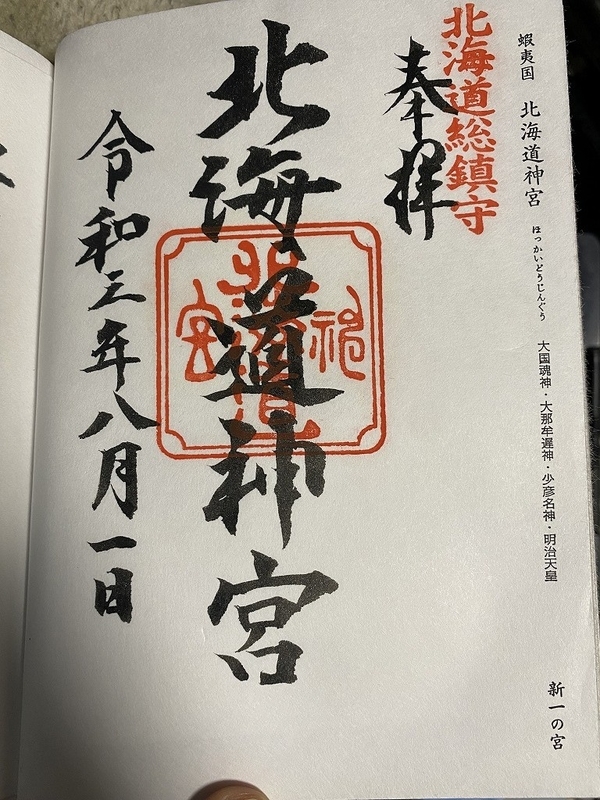 蝦夷国 北海道神宮 ほっかいどうじんぐう 大国魂神・大那牟遅神・少彦名神・明治天皇 新一の宮
北海道総鎮守
奉拝
北海道神宮
令和三年八月一日